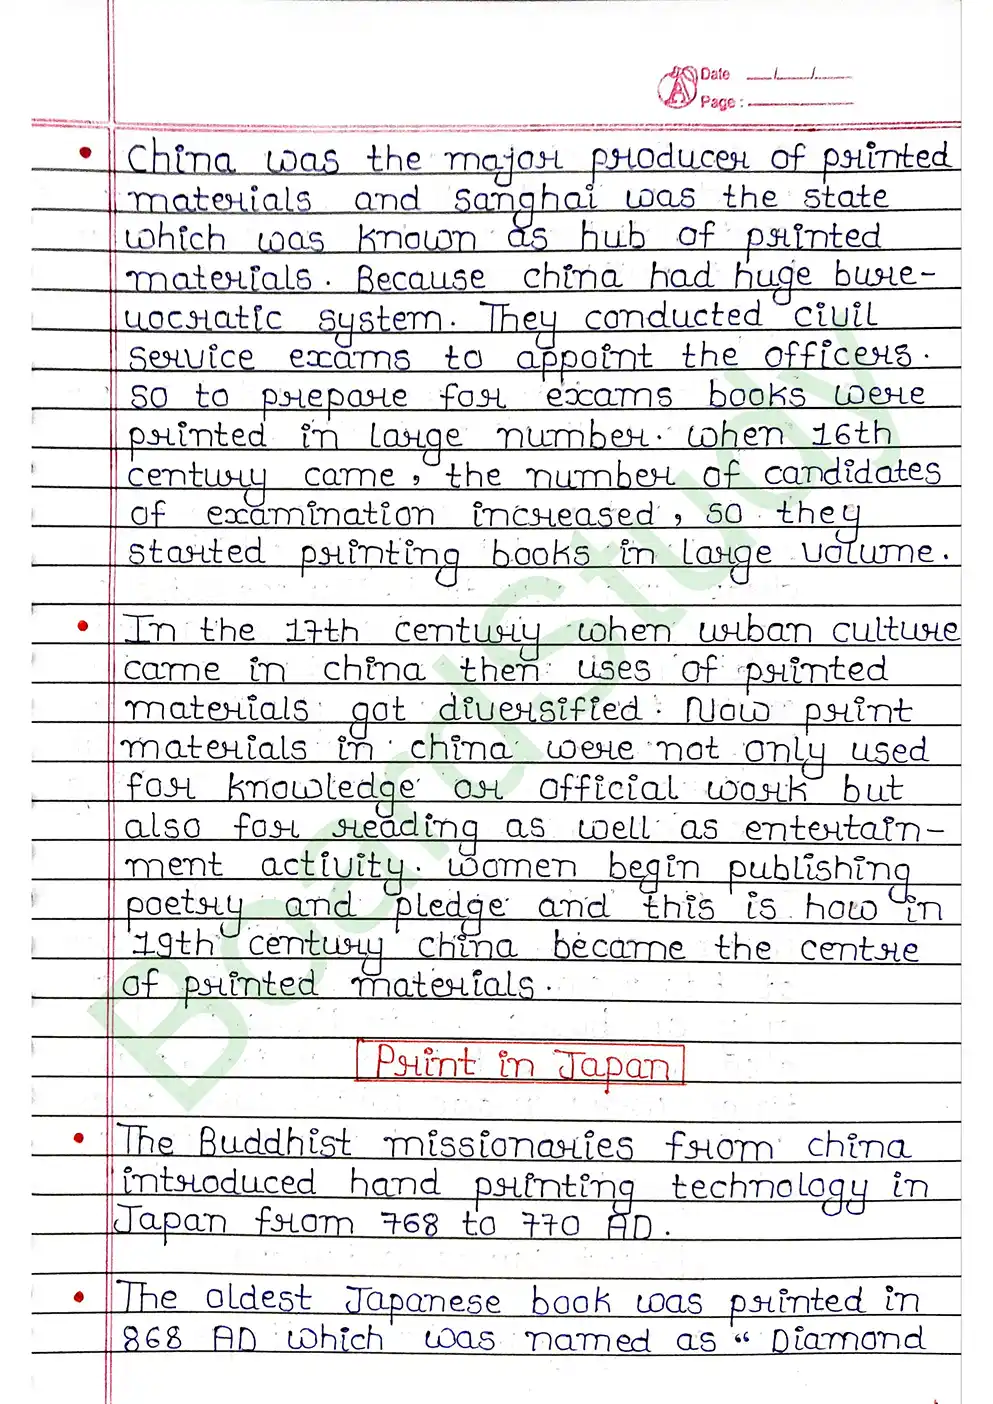 Date __/__/__
Page :
• China was the major producer of printed
materials and sanghai was the state
which was known as hub of printed
materials. Because china had huge bure-
uocratic system. They conducted civil
service exams to appoint the officers.
so to prepare for exams books were
printed in large number. when 16th
century came, the number of candidates
of examination increased, so they
started printing books in large volume.
• In the 17th century when urban culture
came in china then uses of printed
materials got diversified. Now print
materials in china were not only used
for knowledge or official work but
also for reading as well as entertain-
ment activity. Women begin publishing
poetry and pledge and this is how in
19th century china became the centre
of printed materials.
Print in Japan
• The Buddhist missionaries from china
introduced hand printing technology in
Japan from 768 to 770 AD.
• The oldest Japanese book was printed in
868 AD which was named as “ Diamond
BoardStudy